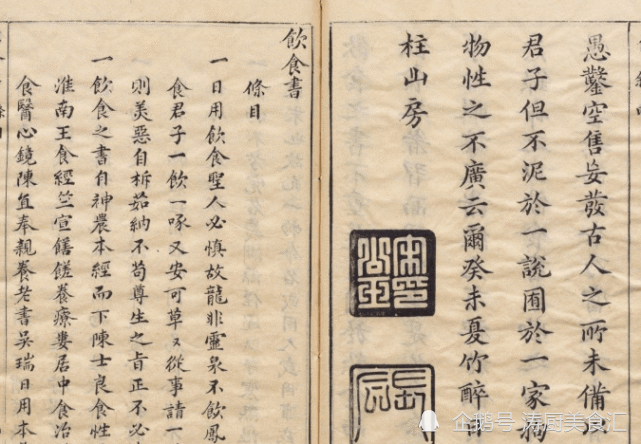 愚鑿空售妄發古人之所未備以
君子但不泥於一說囿於一家拘
物性之不廣云爾癸未夏竹醉日
柱山房
飲食書
條目
一日用飲食聖人必慎故龍非靈泉不飲鳳
食君子一飲一啄又安可草々從事請一
則美惡自柝茹納不苟尊生之旨正不必
一飲食之書自神農本經而下陳士良食性
淮南王食經竺宣饍饈養療婁居中食治
食醫心鏡陳直奉親養老書吳瑞日用本
企鹅号 涛厨美食汇